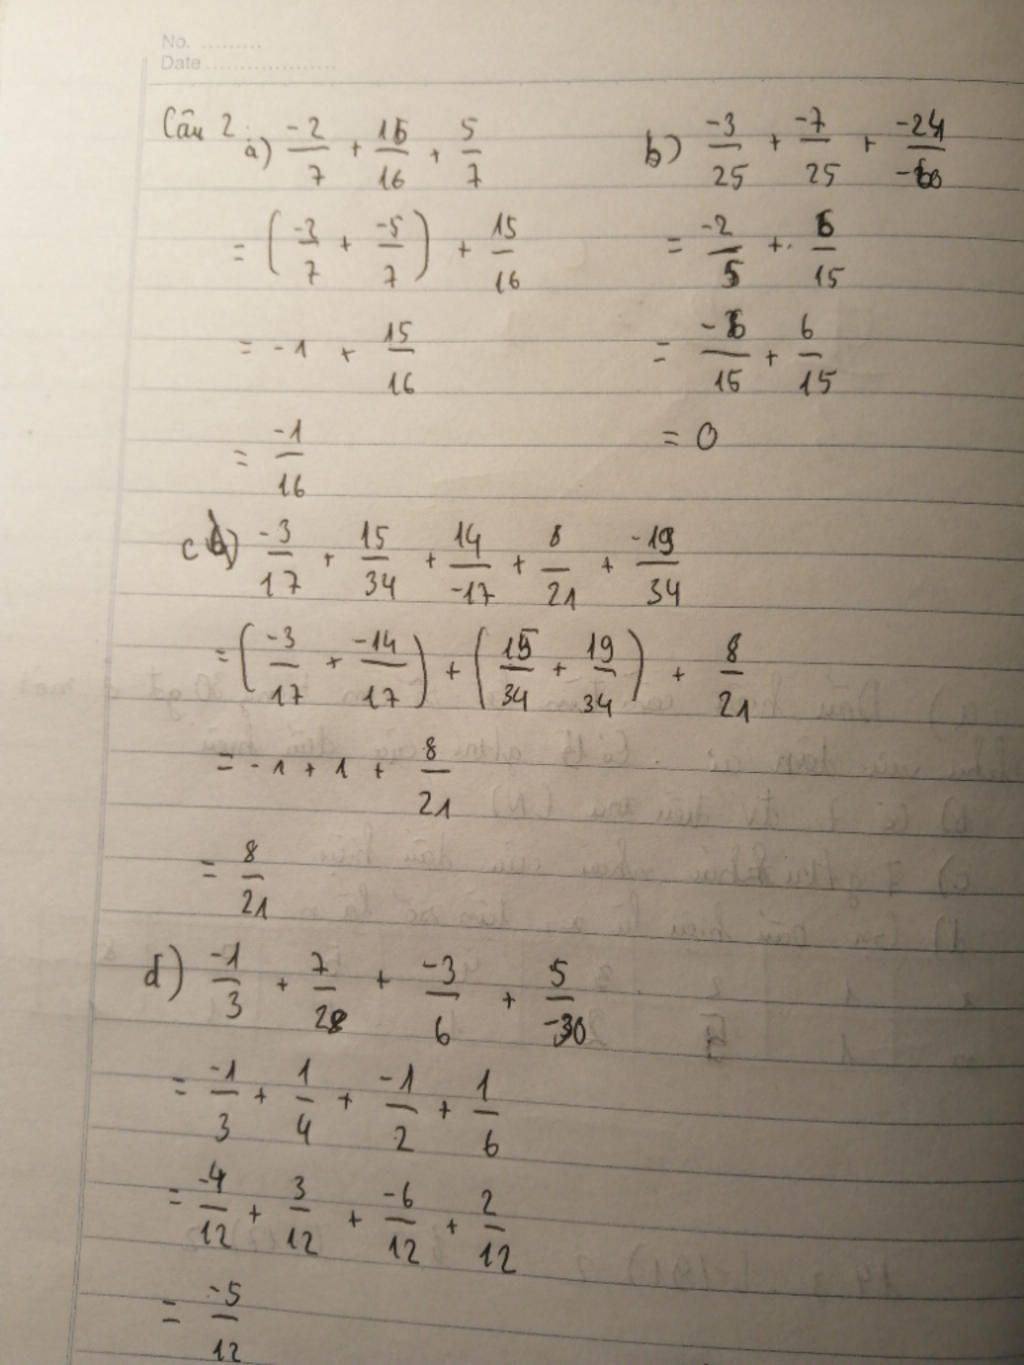 No. .........
Date ...................
Câu 2 : a) -2/7 + 15/16 + 5/7
= (-3/7 + -5/7) + 15/16
= -1 + 15/16
= -1/16
b) -3/25 + -7/25 + -24/-60
= -2/5 + 6/15
= -6/15 + 6/15
= 0
c) -3/17 + 15/34 + 14/-17 + 8/21 + -19/34
= (-3/17 + -14/17) + (15/34 + 19/34) + 8/21
= -1 + 1 + 8/21
= 8/21
d) -1/3 + 7/28 + -3/6 + 5/-30
= -1/3 + 1/4 + -1/2 + 1/6
= -4/12 + 3/12 + -6/12 + 2/12
= -5/12